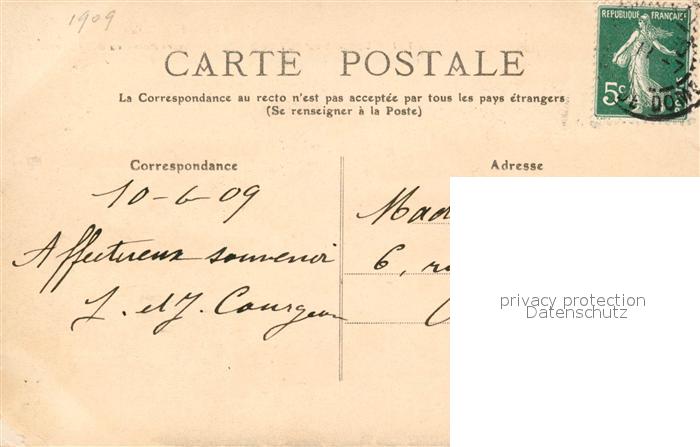 1909
CARTE POSTALE
La Correspondance au recto n'est pas acceptée par tous les pays étrangers
(Se renseigner à la Poste)
REPUBLIQUE FRANÇAISE
5c
Correspondance
10-6-09
Affectueux souvenir
J. et J. Courgeon
Adresse
Mad
6, ru
privacy protection
Datenschutz